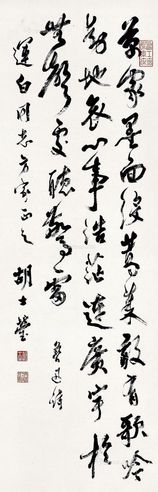 萬家墨面没蒿萊敢有歌吟
動地哀心事浩茫連廣宇於
無聲處聽驚雷 魯迅詩
運白同志方家正之 胡士瑩